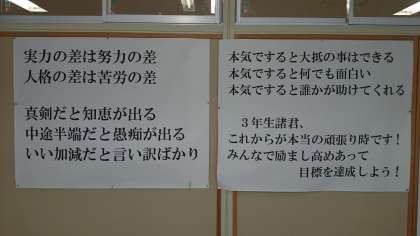 実力の差は努力の差
人格の差は苦労の差
真剣だと知恵が出る
中途半端だと愚痴が出る
いい加減だと言い訳ばかり
本気ですると大抵の事はできる
本気ですると何でも面白い
本気ですると誰かが助けてくれる
３年生諸君、
これからが本当の頑張り時です！
みんなで励まし高めあって
目標を達成しよう！